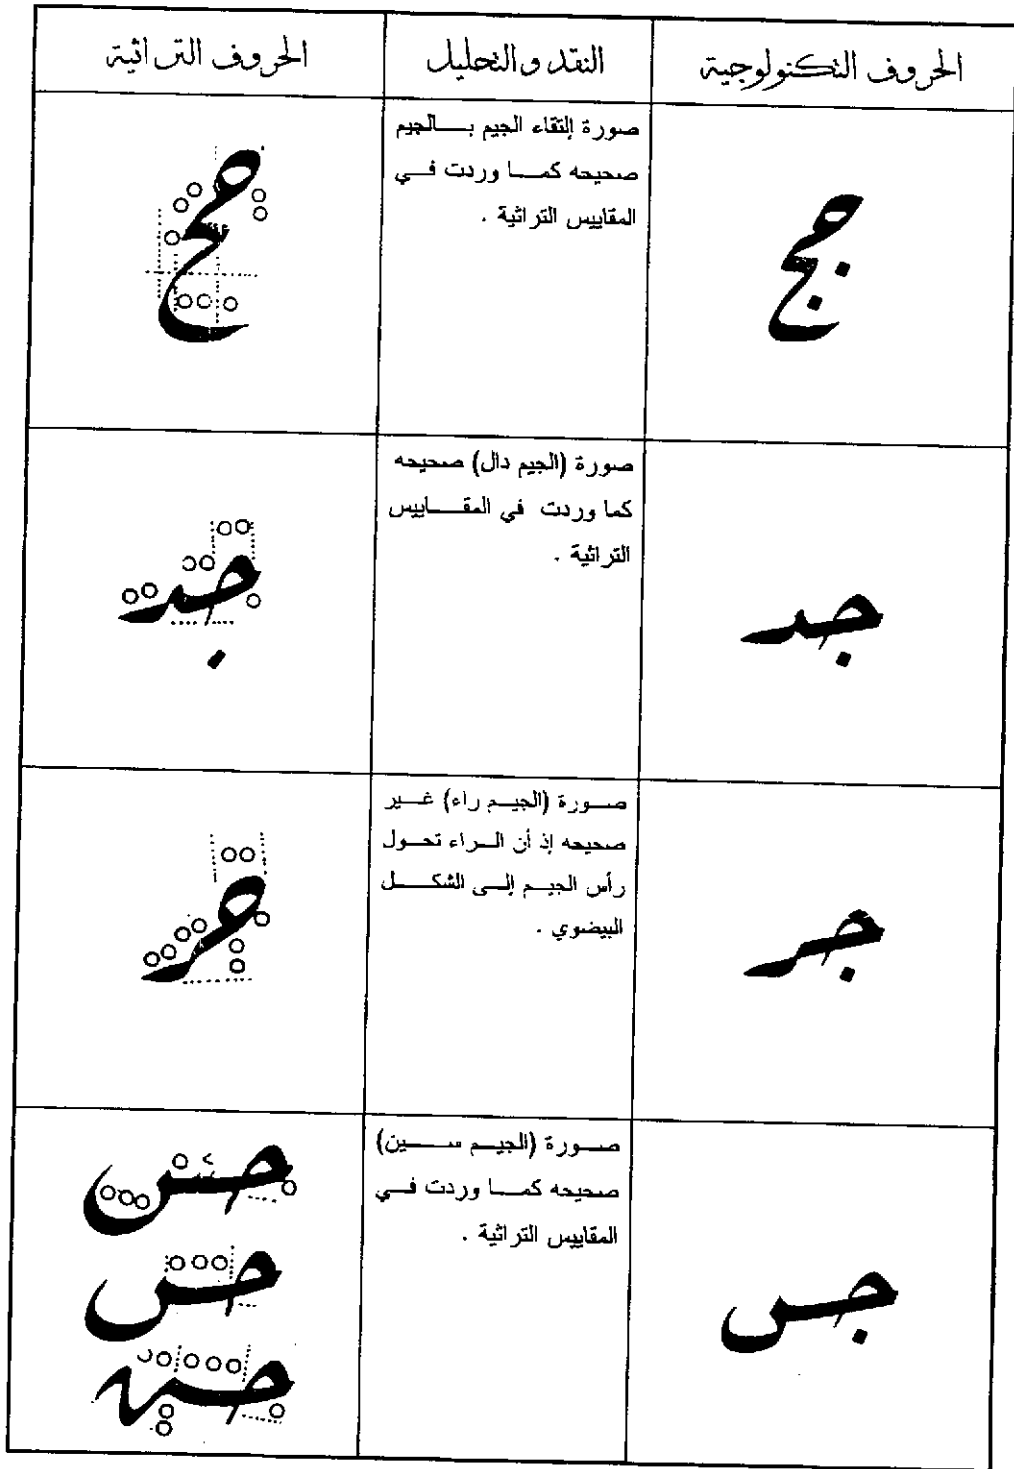 الحروف التكنولوجية
النقد والتحليل
الحروف التراثية
جج
صورة إلتقاء الجيم بالجيم
صحيحه كما وردت في
المقاييس التراثية .
حح
جد
صورة (الجيم دال) صحيحه
كما وردت في المقاييس
التراثية .
جد
جر
صورة (الجيم راء) غير
صحيحه إذ أن الراء تحول
رأس الجيم إلى الشكل
البيضوي .
حر
جس
صورة (الجيم سين)
صحيحه كما وردت في
المقاييس التراثية .
حس
حس